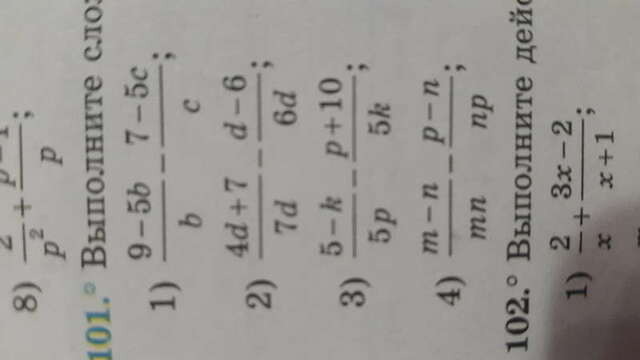 8) \frac{2}{p^2} + \frac{p-1}{p};
101.° Выполните
1) \frac{9-5b}{b} - \frac{7-5c}{c};
2) \frac{4d+7}{7d} - \frac{d-6}{6d};
3) \frac{5-k}{5p} - \frac{p+10}{5k};
4) \frac{m-n}{mn} - \frac{p-n}{np};
102.° Выполните
1) \frac{2}{x} + \frac{3x-2}{x+1};